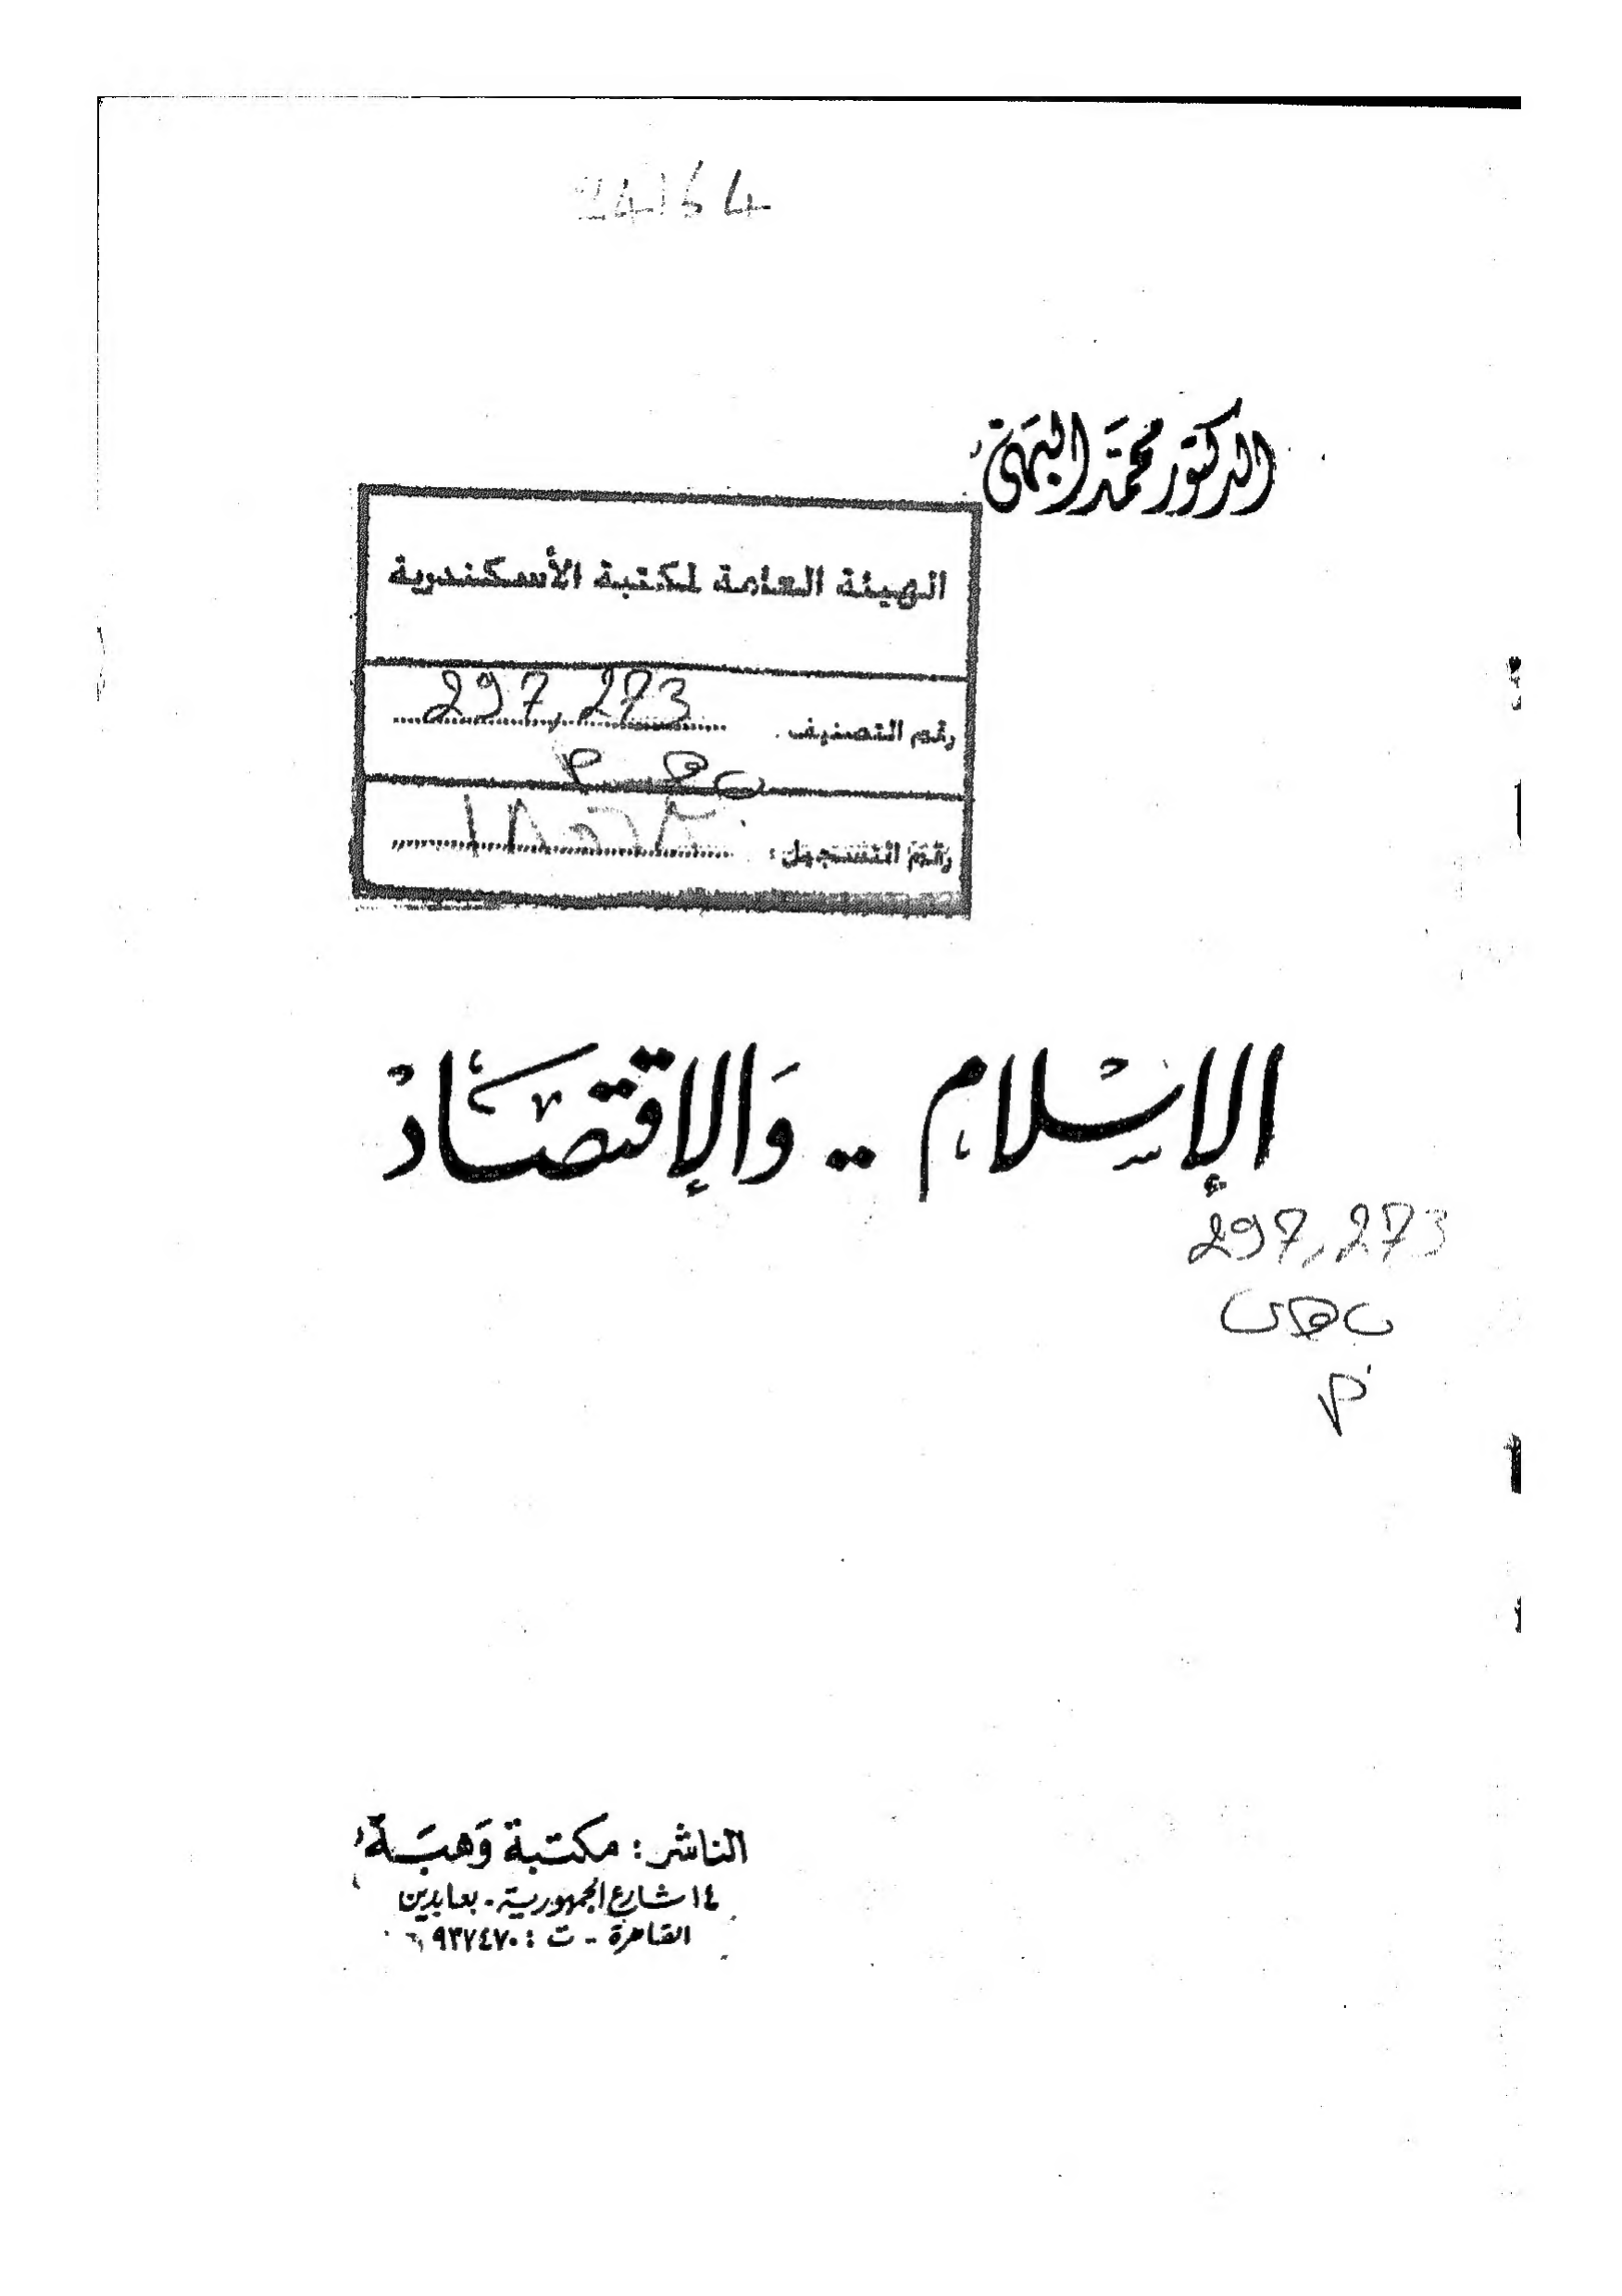 الدكتور محمد البهى
الهيئة العامة لمكتبة الأسكندرية
رقم التصنيف 297,273
رقم التسجيل:
الإسلام .. والإقتصاد
297,273
الناشر: مكتبة وهبة
١٤ شارع الجمهورية - بعابدين
القاهرة - ت: ٩٣٧٤٧٠